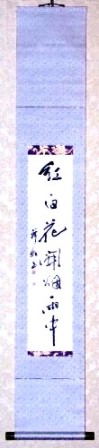 紅白花開烟雨中